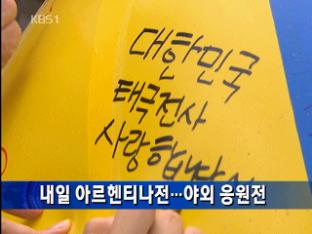 KBS1
대한민국
태극전사
사랑합니다
내일 아르헨티나전…야외 응원전